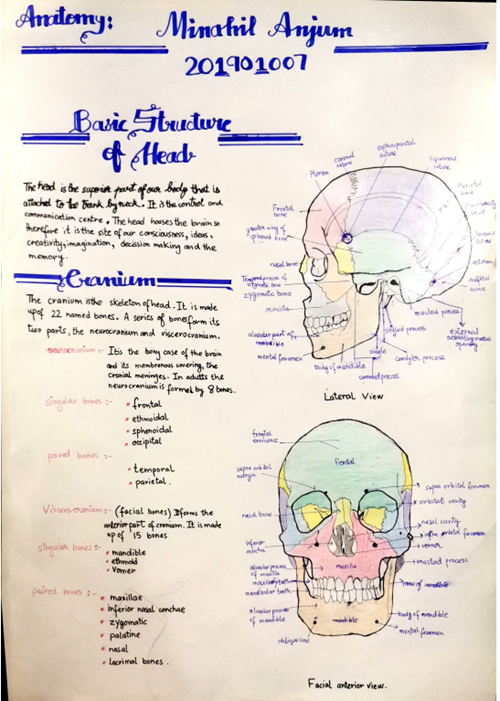 Anatomy:
Minahil Anjum
201901007
Basic Structure
of Head
The head is the superior part of our body that is
attached to the trunk by neck. It is the control and
communication centre. The head houses the brain so
therefore it is the site of our consciousness, ideas,
creativity, imagination, decission making and the
memory.
Cranium
The cranium is the skeleton of head. It is made
up of 22 named bones. A series of bones form its
two parts, the neurocranium and viscerocranium.
neurocranium:- It is the bony case of the brain
and its membranous covering, the
cranial meninges. In adults the
neurocranium is formed by 8 bones.
singular bones:-
• frontal
• ethmoidal
• sphenoidal
• occipital
paired bones :-
• temporal
• parietal.
Viscerocranium:- (facial bones) It forms the
anterior part of cranium. It is made
up of 15 bones
singular bones :-
• mandible
• ethmoid
• Vomer
paired bones :-
• maxillae
• inferior nasal conchae
• zygomatic
• palatine
• nasal
• lacrimal bones.
coronal
suture
Pterion
Frontal
bone
greater wing of
sphenoid bone
nasal bone
Temporal process of
zygomatic bone
zygomatic bone
maxilla
alveolar part of
mandible
mental foramen
body of mandible
angle
coronoid process
condylar process
styloid process
mastoid process
external
opening
squamous
suture
Parietal
bone
Lambdoid
suture
occipital
bone
Lateral View
frontal
eminence
frontal
supra orbital
margin
nasal bone
inferior
concha
alveolar process
of maxilla
maxillary teeth
mandibular teeth
alveolar process
of mandible
oblique line
supra orbital foramen
orbital cavity
nasal cavity
infra orbital foramen
vomer
mastoid process
ramus of mandible
body of mandible
mental foramen
maxilla
mandible
Facial anterior view.